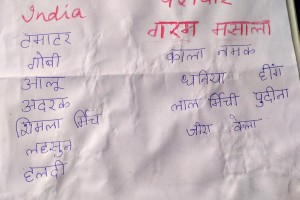 India
टमाटर
गोबी
आलू
अदरक
शिमला मिर्च
लहसुन
हलदी
गरम मसाला
काला नमक
धनिया हींग
लाल मिर्ची पुदीना
जीरा केला